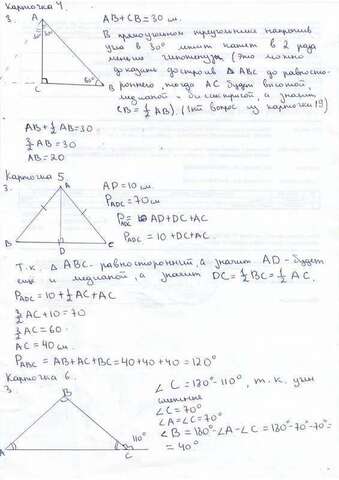 Карточка 4.
3.
A
30°
C
60°
B
AB+CB=30 см.
В прямоугольном треугольнике напротив
угла в 30° лежит катет в 2 раза
меньше гипотенузы (это можно
доказать достроив Δ ABC до равносто-
роннего, тогда AC будет высотой,
медианой и биссектрисой, а значит
CB = 1/2 AB). (1й вопрос из карточки 19)
AB + 1/2 AB = 30
3/2 AB = 30
AB = 20
Карточка 5.
3.
A
B
D
C
AD = 10 см.
P_ADC = 70 см
P_ADC = AD+DC+AC
P_ADC = 10+DC+AC.
Т.к. Δ ABC - равносторонний, а значит AD - будет
еще и медианой, а значит DC = 1/2 BC = 1/2 AC.
P_ADC = 10 + 1/2 AC + AC
3/2 AC + 10 = 70
3/2 AC = 60
AC = 40 см.
P_ABC = AB + AC + BC = 40+40+40 = 120°
Карточка 6.
3.
B
A
C
110°
∠ C = 180° - 110°, т.к. углы
смежные
∠C = 70°
∠A = ∠C = 70°
∠B = 180° - ∠A - ∠C = 180° - 70° - 70° =
= 40°